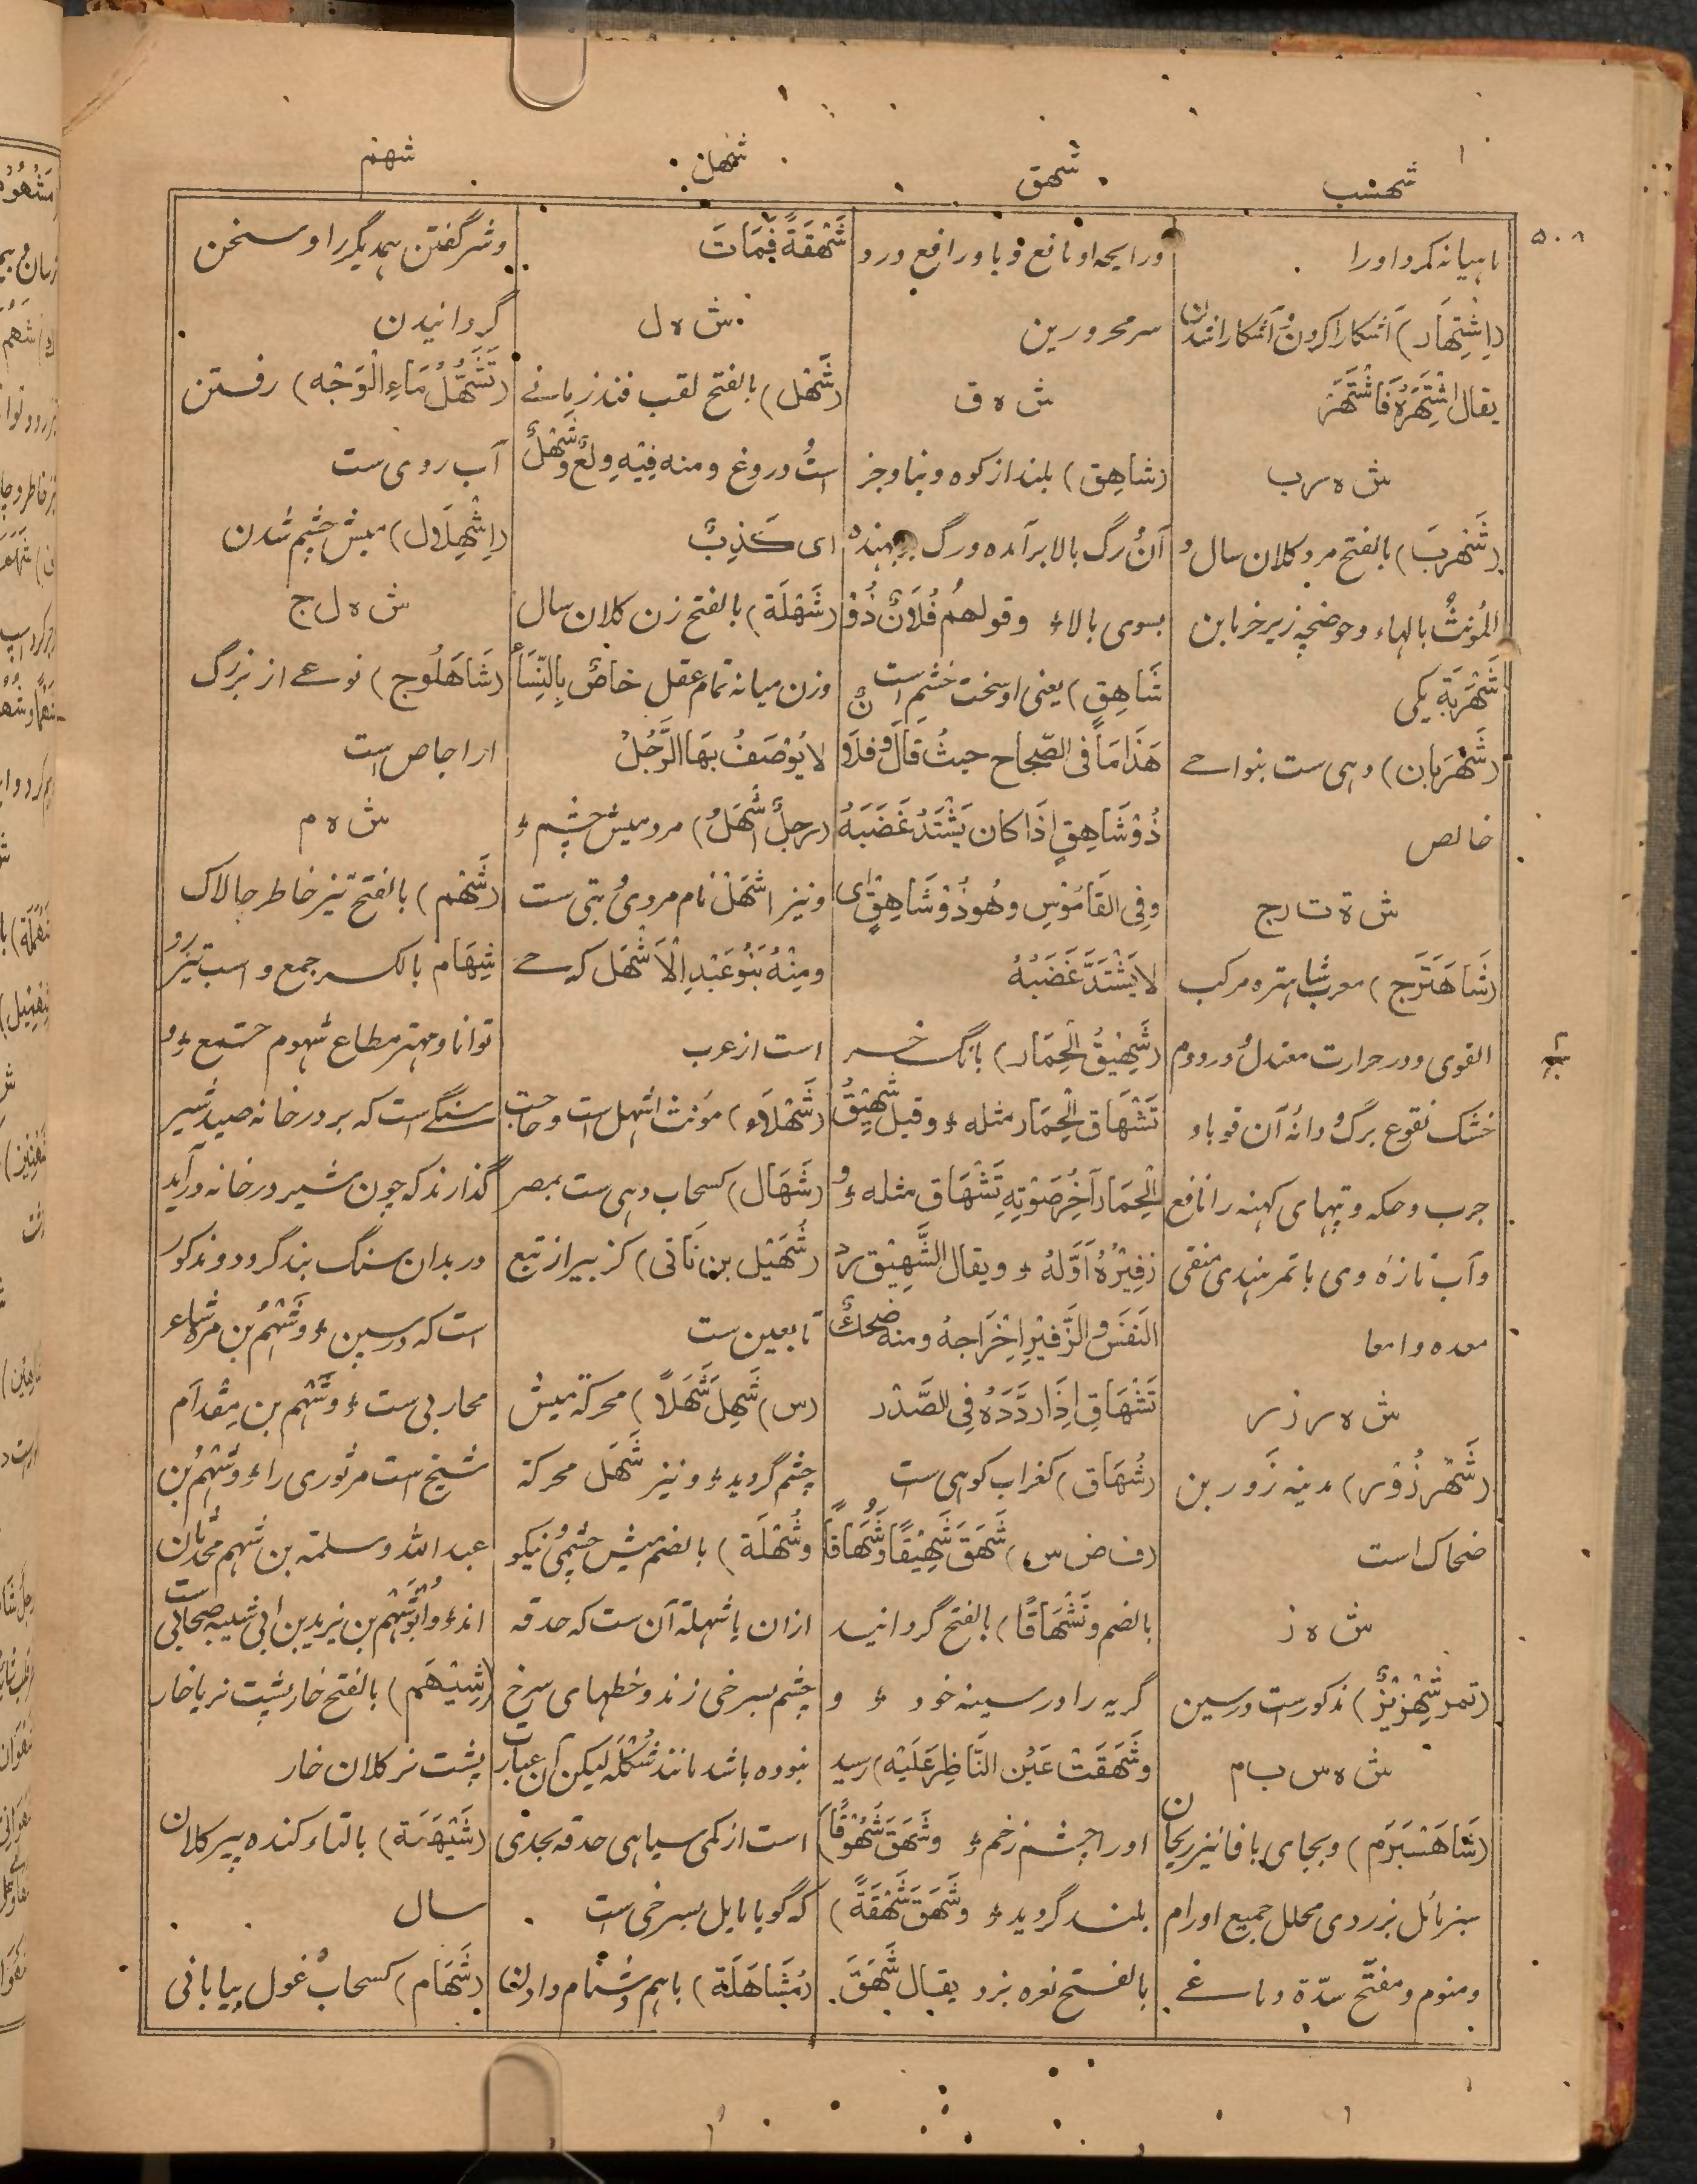 شهسب
شهق
شهل
شهم
۵۰۸
ماهیانه کرد اورا
(اِشْتِهَار) آشکارا کردن و آشکارا شدن
يقال اشْتَهَرَهُ فَاشْتَهَرَ
ش ه ر ب
(شَهْرَبَ) بالفتح مرد کلان سال و
المؤنثُ بالهاء وحوضچه زیر خرما بن
شَهْرَبَة یکی
(شَهْرَبان) دهی ست بنواحے
خالص
ش ه ت ر ج
(شَاهَتَرَج) معرب شاهتره مرکب
القوی ودر حرارت معتدل ودر دوم
خشک نقوع برگ و دانۀ آن قوبا و
جرب و حکه و تپهای کهنه را نافع
وآب تازۀ وی با تمر هندی منقی
معده و امعا
ش ه ر ز ر
(شَهْرَزُوْر) مدینه زَور بن
ضحاک است
ش ه ز
(تمر شِهْرِیْزٌ) مذکور ست در سین
ش ه س ب ر م
(شَاهَسْبَرَم) وبجای با فا نیز ریحان
سبز مائل بزردی محلل جمیع اورام
ومنوم ومفتّح سدّۀ دماغے
ورایحه او نافع وبا ورافع درد
سر محرورین
ش ه ق
(شاهِق) بلند از کوه و بنا و جز
آن و رگ بالا برآمده و رگ جهنده
بسوی بالا ؛ وقولهم فُلَانٌ ذُوْ
شَاهِقٍ) یعنی او سخت خشم است
هَذَا مَا فِی الصّحاح حیثُ قَالَ و فلان
ذُوْ شَاهِقٍ اِذَا کان یَشْتَدُّ غَضَبَهُ
وفِی القَامُوسِ وهُو ذُوْ شَاهِقٍ ای
لا یَشْتَدَّ غَضَبُهُ
(شَهِیْقُ الْحِمَار) بانگ خر
تَشْهَاق الْحِمَار مثله ؛ وقیل شَهِیْقُ
الْحِمَار آخِرُ صَوْتِهِ تَشْهَاق مثله ؛ و
زفِیْرُهُ اَوَّلَهُ ؛ ویقال الشَّهِیْق رد
النَفَسَ والزَّفِیْرِ اِخْرَاجهُ ومنه ضحك
تَشْهَاقٍ اِذَا رَدَّدَهُ فِی الصَّدْر
(شُهَاق) کغراب کوهی ست
(ف ض س) شَهَقَ شَهِیْقًا وَشُهَاقًا
بالضم وتَشْهَاقًا) بالفتح گردانید
گریه را در سینه خود ؛ و
وشَهَقَتْ عَیْن النَّاظِرِ عَلَیْه) رسید
اورا چشم زخم ؛ وشَهَقَ شُهُوْقًا)
بلند گردید ؛ وشَهَقَ شَهْقَةً)
بالفتح نعره بزد یقال شَهَقَ
شَهْقَةً فَمَاتَ
ش ه ل
(شَهْل) بالفتح لقب فند زمانے
است و دروغ ومنه فِیْهِ ولعٌ وشَهْلٌ
ای کَذِبٌ
(شَهْلَة) بالفتح زن کلان سال
وزن میانه تمام عقل خاصٌ بِالنِّسَاء
لا یُوْصَفُ بهَا الرَّجُلُ
(رجلٌ اَشْهَلُ) مرد میش چشم ؛
ونیز اشهَلْ نام مردی و بتی ست
ومِنْهُ بَنُوْ عَبْدِ الْاَشْهَل که حے
است از عرب
(شَهْلَاء) مؤنث اشهل است وحاجت
(شَهَال) کسحاب دهی ست بمصر
(شُهَیْل بن نَابی) کزبیر از تبع
تابعین ست
(س) شَهِلَ شَهَلًا) محرکة میش
چشم گردید ؛ ونیز شَهَل محرکة
وشُهْلَة) بالضم میش چشمی و نیکو
ازان یا شهلة آن ست که حدقه
چشم بسرخی زند وخطهای سرخ
نبوده باشد مانند شُکْلَه لیکن آن عبارت
است از کمی سیاهی حدقه بحدی
که گویا مایل بسرخی ست
(مُشَاهَلَة) باهم دشنام دادن
وشر گفتن یکدیگر را و سخن
گردانیدن
(تَشَهُّلُ مَاءِ الْوَجْه) رفتن
آب روی ست
(اِشْهِلَال) میش چشم شدن
ش ه ل ج
(شَاهَلُوج) نوعے از بزرگ
از اجاص است
ش ه م
(شَهْم) بالفتح تیز خاطر چالاک
شِهَام بالکسر جمع و اسب تیزرو
توانا و مهتر مطاع شهوم جمع ؛ و
سنگے است که بر در خانه صید شیر
گذارند که چون شیر در خانه درآید
در بدان سنگ بند گردد و مذکور
است که در سین ؛ وشَهْمُ بن مرۃ شاعر
محاربی ست ؛ وشَهْم بن مِقْدام
شیخ است مر ثوری را ؛ وشَهْمُ بن
عبدالله وسلمة بن شهم محدثان
اند ؛ وابُوْ شَهْم بن یزید بن ابی شیبه صحابی ست
(شَیْهَم) بالفتح خارپشت نر یا خار
پشت نر کلان خار
(شَیْهَمَة) بالتاء گنده پیر کلان
سال
(شَهَام) کسحاب غول بیابانی